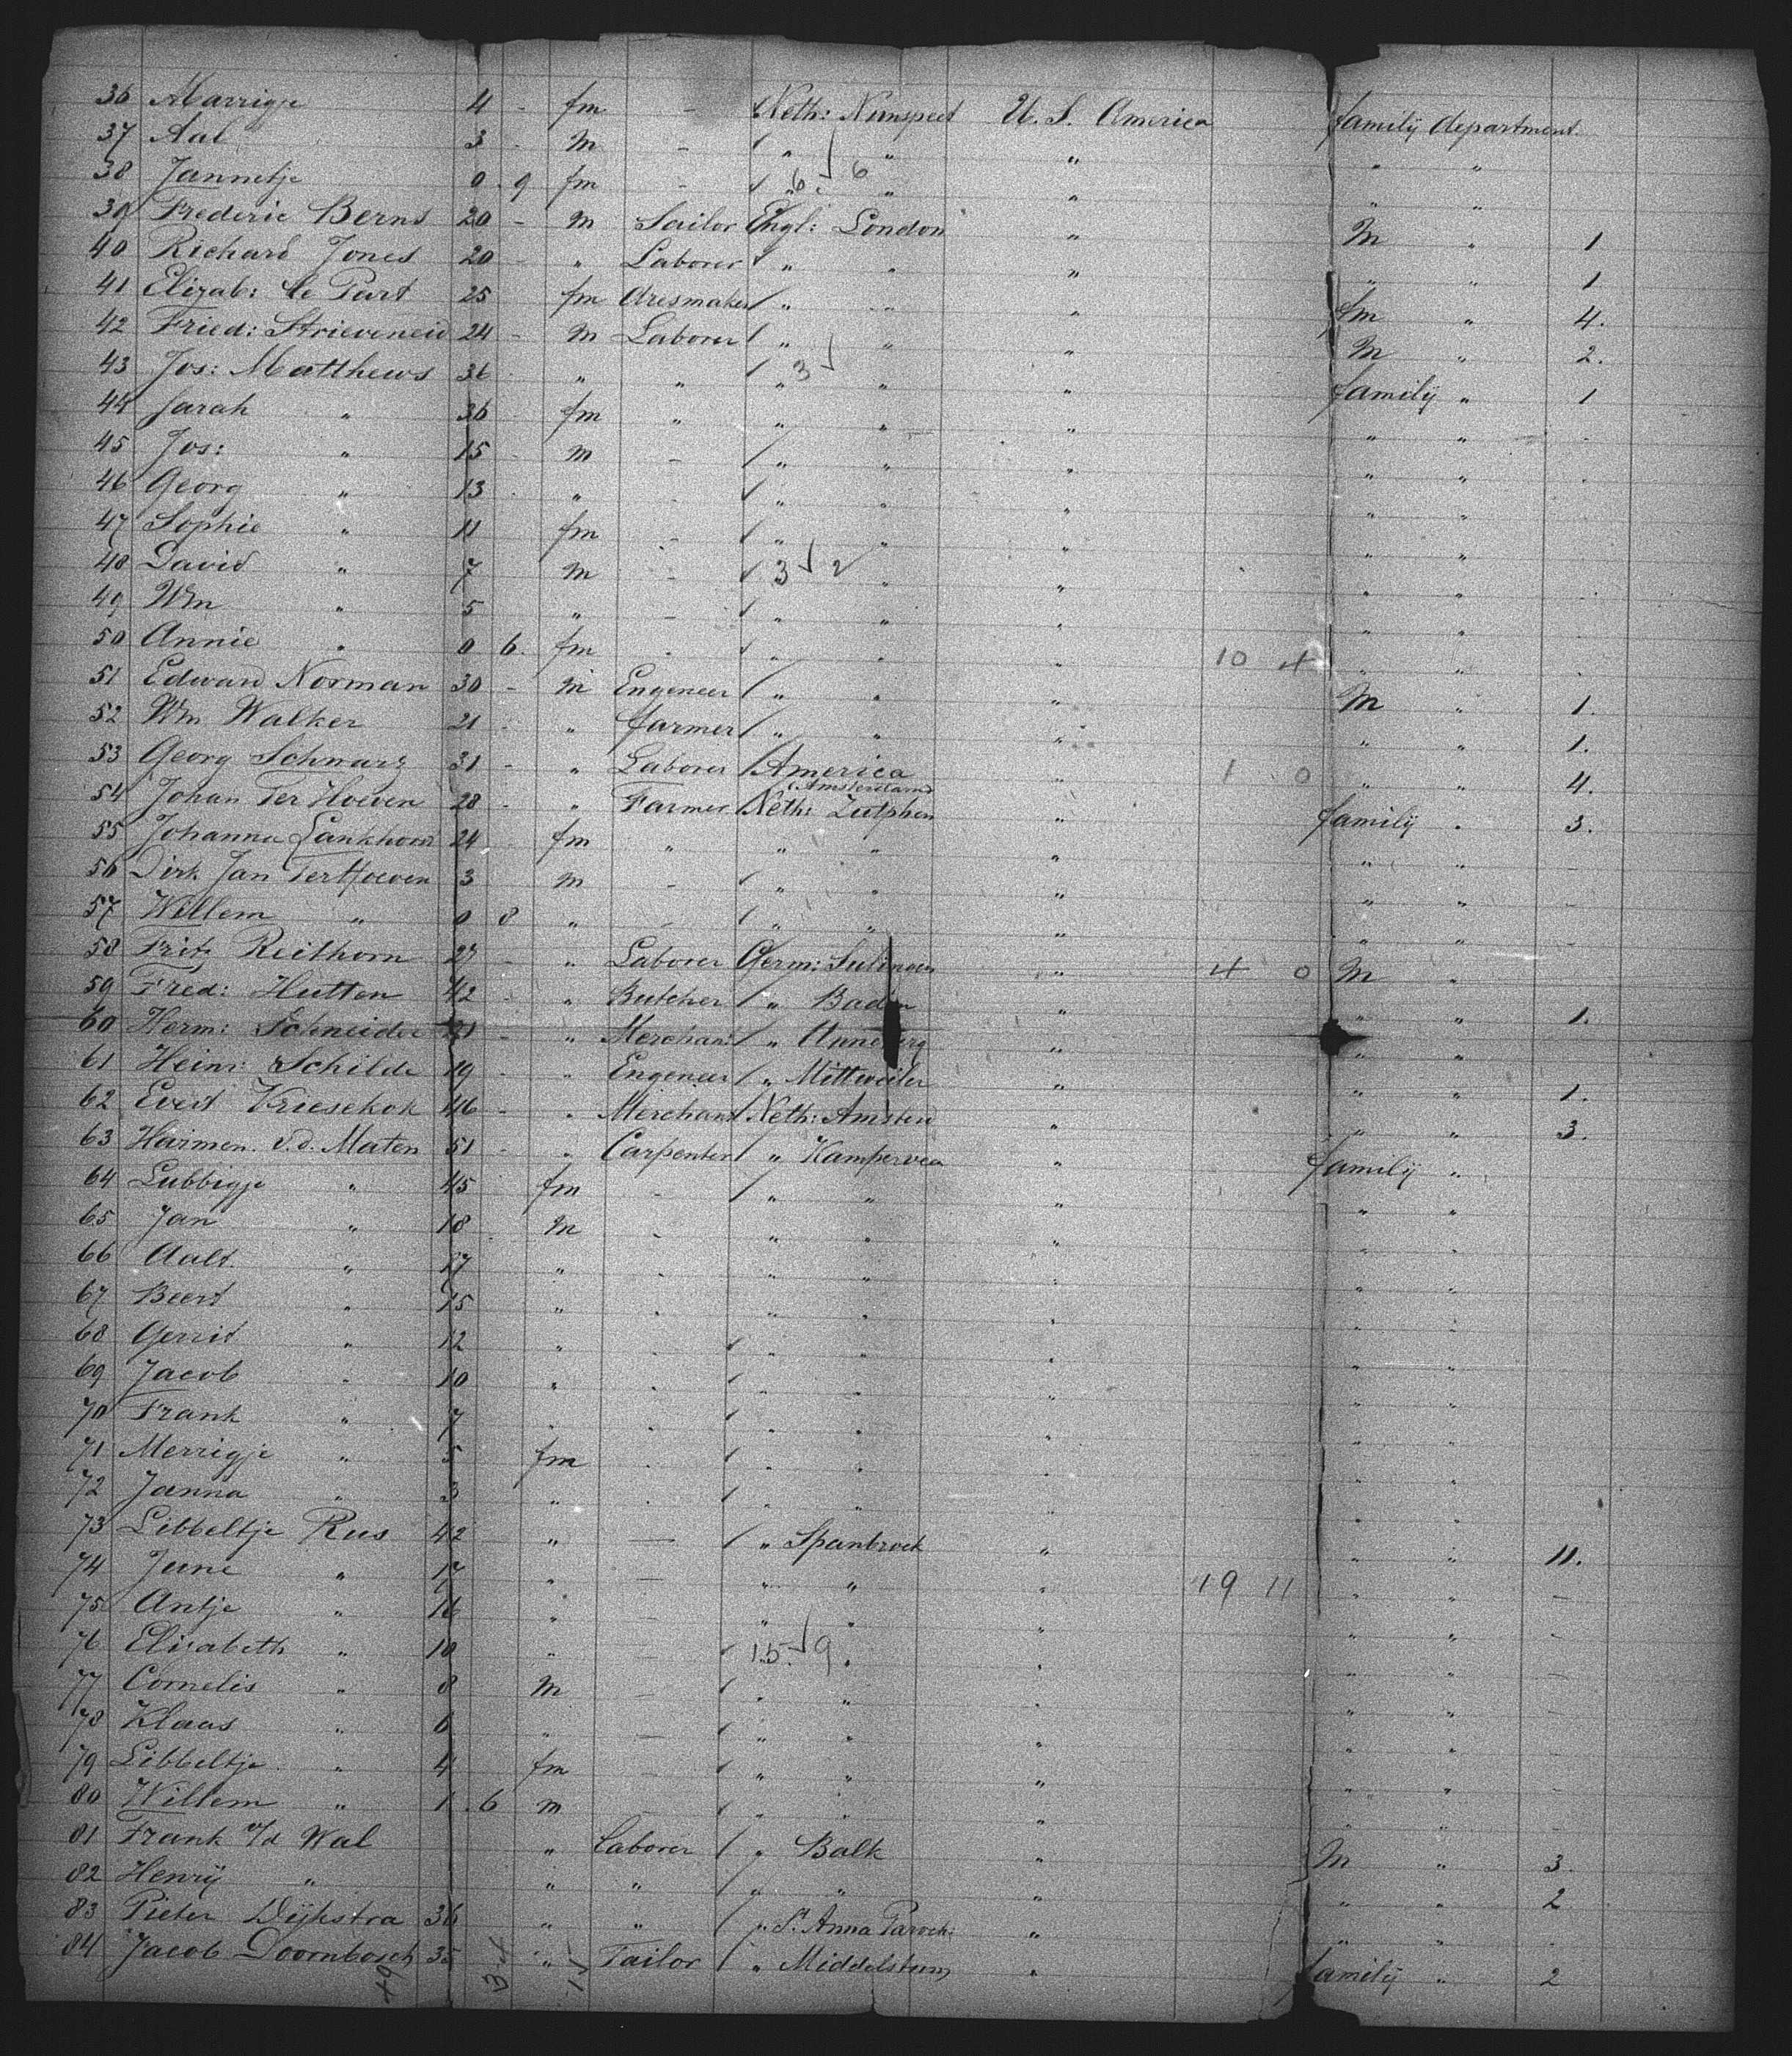 36 Marrigje 4 - fm - Neth: Nunspeet U. S. America family department.
37 Aal 3 - m - " " " " "
38 Jannetje 0 9 fm - " 6 6 " " " "
39 Frederic Berns 20 - m Sailor Engl: London " M " 1
40 Richard Jones 20 - " Laborer " " " " " 1
41 Elizab: le Part 25 fm dresmaker " " " fm " 4.
42 Fried: 24 - m Laborer " " " M " 2.
43 Jos: Matthews 36 " " " 3 " " family " 1
44 Sarah " 36 - fm " " " " " " -
45 Jos: " 15 - m - " " " " " -
46 Georg " 13 " - " " " " "
47 Sophie " 11 fm - " " " " "
48 David " 7 m - 3 2 " " " "
49 Wm " 5 " - " " " " "
50 Annie " 0 6. fm - " " " 10 4 " "
51 Edward Norman 30 - m Engeneer " " " M " 1.
52 Wm Walker 21 - " farmer " " " " " 1.
53 Georg Schwarz 31 - " Laborer America " 1 0 " " 4.
Amsterdam
54 Johan Ter Hoeven 28 - " Farmer Neth: Zutphen " family " 3.
55 Johanna 24 fm " " " " " " -
56 Dirk Jan TerHoeven 3 m - " " " " " -
57 Willem " 0 8 " - " " " " " -
58 Fritz Reithorn 27 - " Laborer Germ: " 4 0 M "
59 Fred: Hutten 42 - " Butcher " Baden " " " 1.
60 Herm: Schneider 21 - " Merchant " " " "
61 Heinr: Schilde 19 - " Engeneer " Mittweiler " " " 1.
62 Evert Kriesekok 46 - " Merchant Neth: Amsterd " " " 3.
63 Harmen v.d. Maten 51 - " Carpenter " Kamperveen " family "
64 Lubbigje " 45 fm - " " " " "
65 Jan " 18 m - " " " " "
66 Aalt " 17 " - " " " " "
67 Beert " 15 " - " " " " "
68 Gerrit " 12 " - " " " " "
69 Jacob " 10 " - " " " " "
70 Frank " 7 " - " " " " "
71 Merrigje " 5 fm - " " " " "
72 Janna " 3 " - " " " " "
73 Libbeltje Rus 42 " - " Spanbroek " " " 11.
74 June " 17 " - " " " 19 11 " " -
75 Antje " 16 " - " " " " " -
76 Elisabeth " 10 " - 15 9 " " " " -
77 Cornelis " 8 m - " " " " " -
78 Klaas " 6 " - " " " " " -
79 Libbeltje " 4 fm - " " " " " -
80 Willem " 1 6 m - " " " " " -
81 Frank v/d Wal " Laborer " Balk " M " 3.
82 Henrÿ " " " " " " " " 2
83 Pieter Dÿkstra 36 " " " St. Anna Paroch: " " "
84 Jacob Doornbosch 35 " Tailor " Middelstum " family " 2